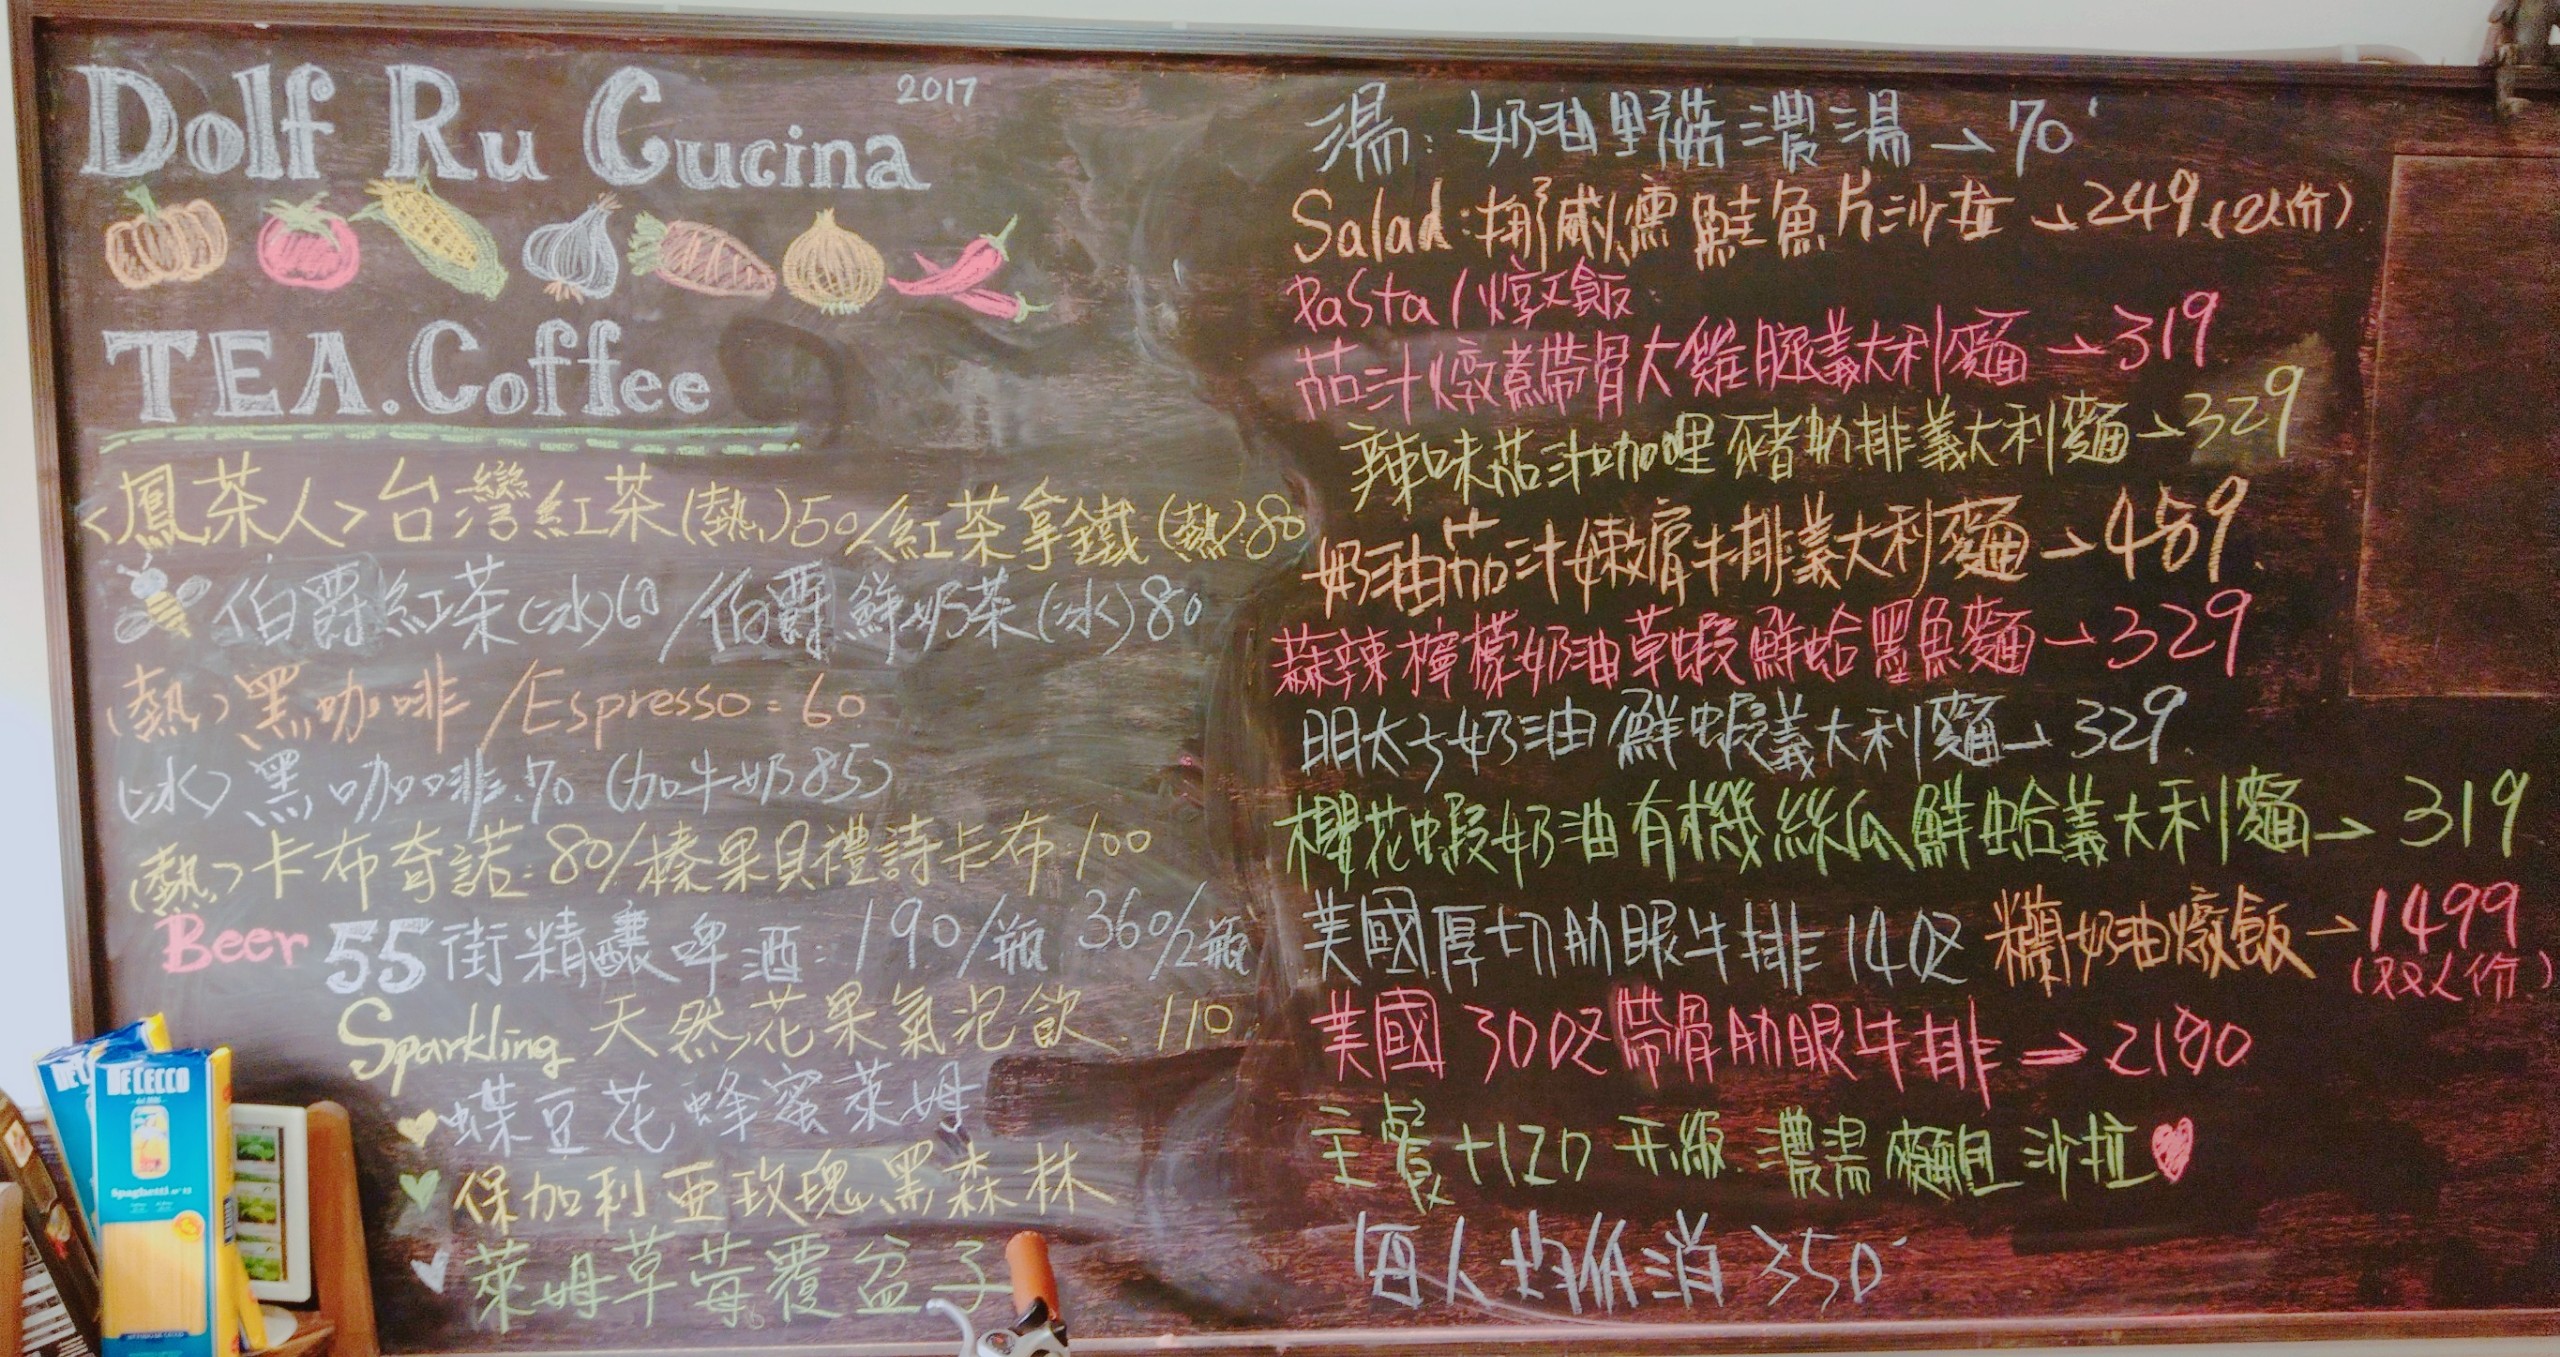 Dolf Ru Cucina
2017
TEA.Coffee
<鳳茶人>台灣紅茶(熱)50/紅茶拿鐵(熱)80
伯爵紅茶(冰)60/伯爵鮮奶茶(冰)80
(熱)黑咖啡/Espresso=60
(冰)黑咖啡.70(加牛奶85)
(熱)卡布奇諾:80/榛果貝禮詩卡布:100
Beer 55街精釀啤酒:190/瓶 360/2瓶
Sparkling 天然花果氣泡飲.110
蝶豆花蜂蜜萊姆
保加利亞玫瑰黑森林
萊姆草莓覆盆子
湯:奶油野菇濃湯→70
Salad:挪威燻鮭魚片沙拉→249(2人份)
Pasta/燉飯
茄汁燉煮帶骨大雞腿義大利麵→319
辣味茄汁咖哩豬肋排義大利麵→329
奶油茄汁嫩肩牛排義大利麵→489
蒜辣檸檬奶油草蝦鮮蛤墨魚麵→329
明太子奶油鮮蝦義大利麵→329
櫻花蝦奶油有機絲瓜鮮蛤義大利麵→319
美國厚切肋眼牛排14oz 奶油燉飯→1499
(双人份)
美國30oz帶骨肋眼牛排→2180
主餐+120 升級.濃湯麵包沙拉
每人均低消350
DE CECCO
Spaghetti n°12